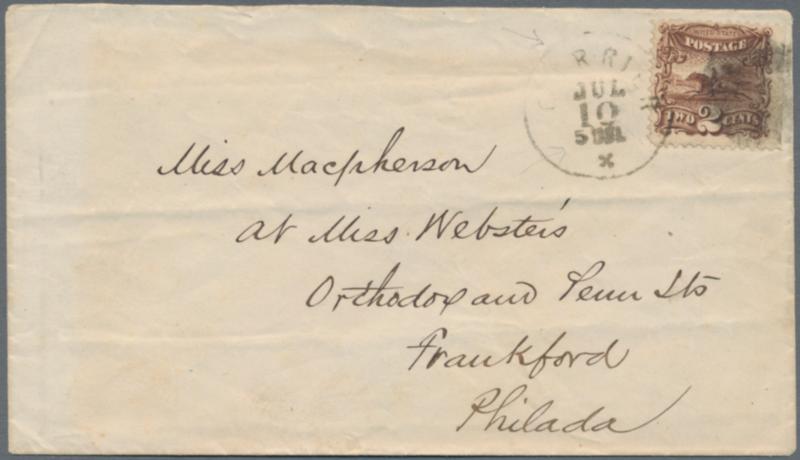 UNITED STATES
POSTAGE
TWO 2 CENTS
JUL
10
Miss Macpherson
at Miss Webster's
Orthodox and Penn Sts
Frankford
Philada